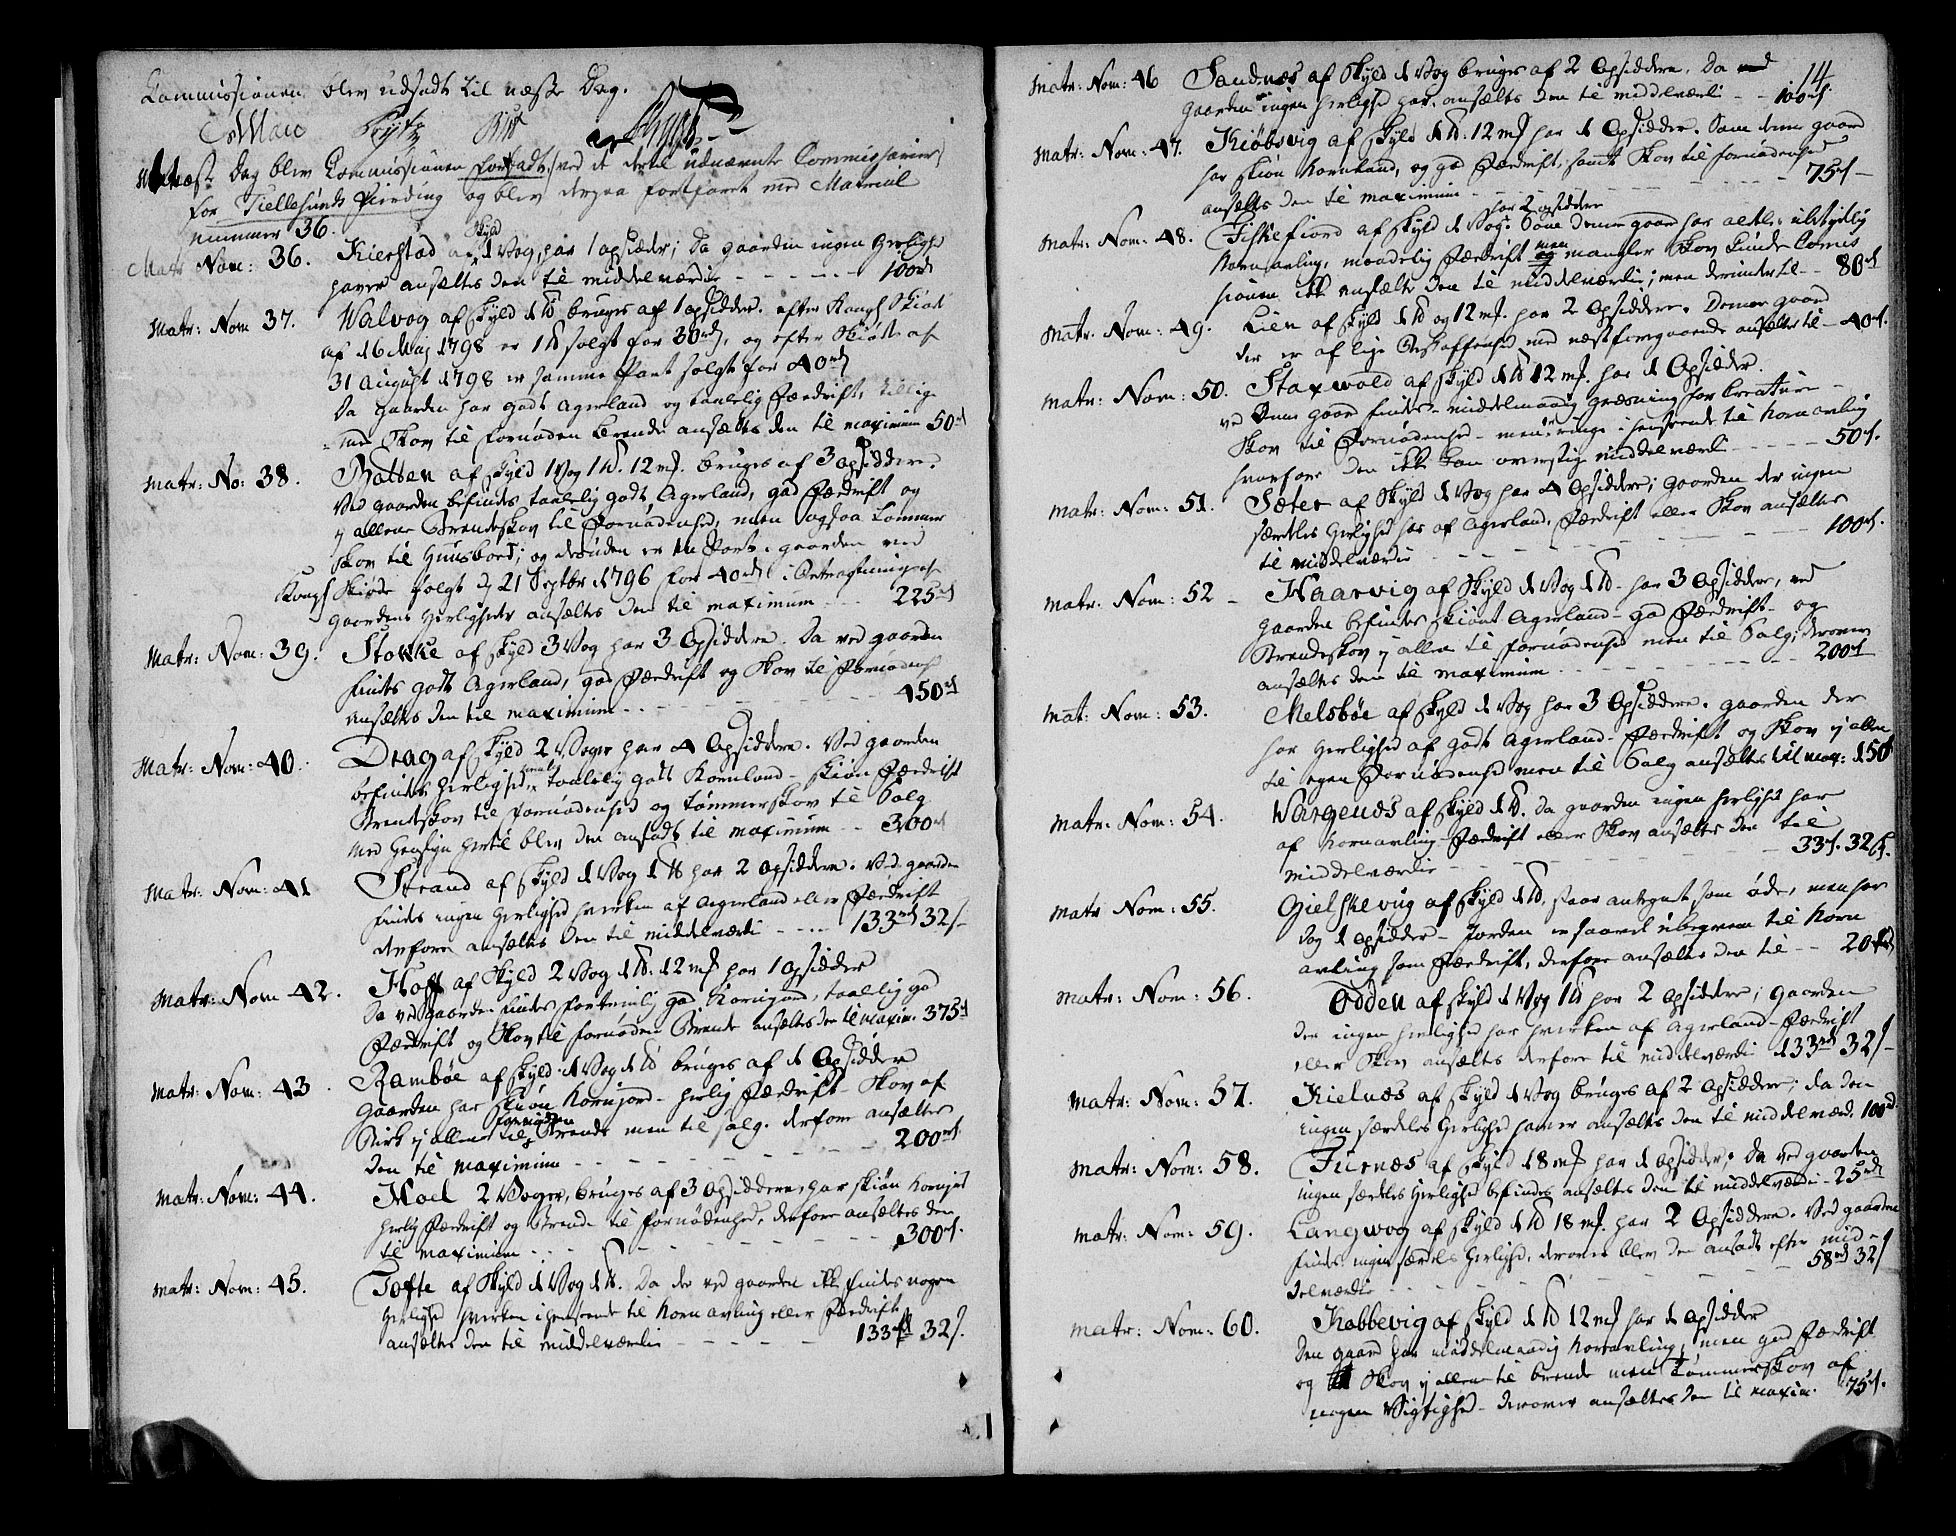 Commissionen blev udsadt til næste Dag.
CsMaco Frytz
Næste Dag blev Commissionen fortsadt (ved de dertil udnævnte Commissairer)
for Tiellesunds Fierding og blev dersaa fortfaret med Matricul
nummer 36.
Matr Nom: 36. Kierstad af Skyld 1 Vog, har 1 opsidder; Da gaarden ingen Herlighed
haver ansættes den til middelværdie - - - - - 100rd
Matr: Nom 37. Walvog af Skyld 1 ℔ bruges af 1 opsidder. efter Kongl Skiøde
af 16 Maj 1798 er 1 ℔ solgt for 30rd, og efter Skiøde af
31 August 1798 er samme Part solgt for 40rd
Da gaarden har godt agerland og taalelig Fædrift, tillige
med Skov til fornøden brende ansættes den til maximum 50rd
Matr: No: 38. Balten af Skyld 1 Vog 1 ℔. 12 mk. bruges af 3 opsiddere.
Ved gaarden befindes taalelig godt Agerland, god Fædrift og
ej allene Brendeskov til Fornødenhed, men ogsaa Tømmer
Skov til Huusbord; og desuden er en Part i gaarden ved
Kongl Skiøde solgt d 21 Septbr 1796 for 40rd i Betragtning af
gaardens Herligheder ansættes den til maximum - - - 225rd
Matr: Nom: 39. Stokke af Skyld 3 Vog har 3 Opsiddere. Da ved gaarden
findes godt Agerland, god Fædrift og Skov til Fornødenhed
ansættes den til maximum - - - - - - 450rd
Matr: Nom: 40. Drag af Skyld 2 Voger har 4 Opsiddere. Ved gaarden
befindes Herlighed, taalelig godt Kornland - skiøn Fædrift
Brendeskov til fornødenhed og tømmerskov til Salg
med Hensyn hertil blev den ansadt til maximum - - 300rd
Matr: Nom: 41 Strand af Skyld 1 Vog 1 ℔ har 2 Opsiddere. Ved gaarden
findes ingen Herlighed hverken af Agerland eller Fædrift
derfore ansættes den til middelværdi - - - - 133rd 32/-
Matr: Nom 42. Hoff af Skyld 2 Vog 1 ℔: 12 mk har 1 Opsidder
Da ved gaarden findes fortrinlig god Kornjord, taalelig god
Fædrift og Skov til fornøden Brende ansættes den til maxim. 375rd
Matr: Nom: 43 Rambøe af Skyld 1 Vog 1 ℔ bruges af 1 Opsidder
gaarden har skiøn Kornjord - herlig Fædrift - Skov af
Birk ej allene til fornøden Brende men til salg. derfore ansættes
den til maximum - - - - - - 200rd.
Matr: Nom: 44. Hoel 2 Voger, bruges af 3 Opsiddere, har skiøn Kornjord
herlig Fædrift og Brende til fornødenhed, derfore ansættes den
til maximum - - - - - - 300rd.
Matr: Nom: 45. Tofte af Skyld 1 Vog 1 ℔. Da der ved gaarden ikke findes nogen
Herlighed hverken i henseende til Kornavling eller Fædrift
ansættes den til middelværdi - - - - - 133rd 32/.
14
Matr: Nom: 46 Sandnæs af Skyld 1 Vog bruges af 2 Opsiddere. Da
gaarden ingen Herlighed har, ansættes den til middelværdi - - 100rd.
Matr: Nom: 47. Kiøbsvig af Skyld 1 ℔. 12 mk har 1 Opsidder. Som denne gaard
har skiøn Kornland, og god Fædrift, samt Skov til fornødenhed
ansættes den til maximum - - - - - - 75rd -
Matr: Nom: 48. Fiskefiord af Skyld 1 Vog har 2 opsiddere. Som denne gaard har
Kornavling, maadelig Fædrift men mangler Skov
ansætte den til middelværdi; men derunder til - - 80rd
Matr: Nom: 49. Lien af Skyld 1 ℔ og 12 mk. har 2 Opsiddere. Denne gaard
der er af lige Beskaffenhed med næstforegaaende ansættes til - 40rd.
Matr: Nom: 50. Staxwold af Skyld 1 ℔ 12 mk. har 1 Opsidder.
ved denne gaard findes - middelmaadig græsning for Creature -
Skov til Fornødenhed - men ringe i henseende til Kornavling
hvorfore den ikke kan overstige middelværdi - - - - 50rd.
Matr: Nom: 51. Sæter af Skyld 1 Vog har 4 Opsiddere; gaarden der ingen
særdeles Herlighed har af Agerland, Fædrift eller Skov ansættes
til middelværdie - - - - - - 100rd.
Matr: Nom: 52 - Haarvig af Skyld 1 Vog 1 ℔ - har 3 Opsiddere, ved
gaarden befindes skiønt Agerland - god Fædrift - og
Brendeskov ej allene til fornødenhed men til Salg; derover
ansættes den til maximum - - - - - - 200rd
Matr: Nom: 53. Melsbøe af Skyld 1 Vog har 3 Opsiddere. gaarden der
har Herlighed af godt Agerland - Fædrift og Skov ej allene
til egen Fornødenhed men til Salg ansættes til max: 150rd
Matr: Nom: 54. Wargenæs af Skyld 1 ℔. Da gaarden ingen Herlighed har
af Kornavling - Fædrift eller Skov ansættes den til
middelværdie - - - - - - 33rd. 32ß.
Matr Nom: 55. Gielskevig af Skyld 1 ℔. staar antegnet som øde, men har
dog 1 opsidder - Jorden er saavel ubeqvem til Korn
avling som Fædrift, derfore ansættes den til - - 20rd
Matr: Nom: 56. Odden af Skyld 1 Vog 1 ℔ har 2 Opsiddere; gaarden
der ingen Herlighed har hverken af Agerland - Fædrift
eller Skov ansættes derfore til middelværdi 133rd 32/-
Matr: Nom: 57. Kielnæs af Skyld 1 Vog bruges af 2 Opsiddere; da den
ingen særdeles Herlighed haver ansættes den til middelværd. 100rd
Matr: Nom: 58. Furnæs af Skyld 18 mk har 1 Opsidder; Da ved gaarden
ingen særdeles Herlighed befindes ansættes den til middelværdi - 25rd
Matr: Nom: 59. Langwog af Skyld 1 ℔ 18 mk. har 2 Opsiddere. Ved gaarden
findes ingen særdeles Herlighed, derover blev den ansadt efter mid-
delværdie - - - - - - 58rd 32/
Matr: Nom: 60. Kobbevig af Skyld 1 ℔ 12 mk har 1 Opsidder
Den gaard har middelmaadig Kornavling, men god Fædrift
og Skov ej allene til brende men Tømmerskov af
nogen Vigtighed - derover ansættes den til maxim. 75rd.